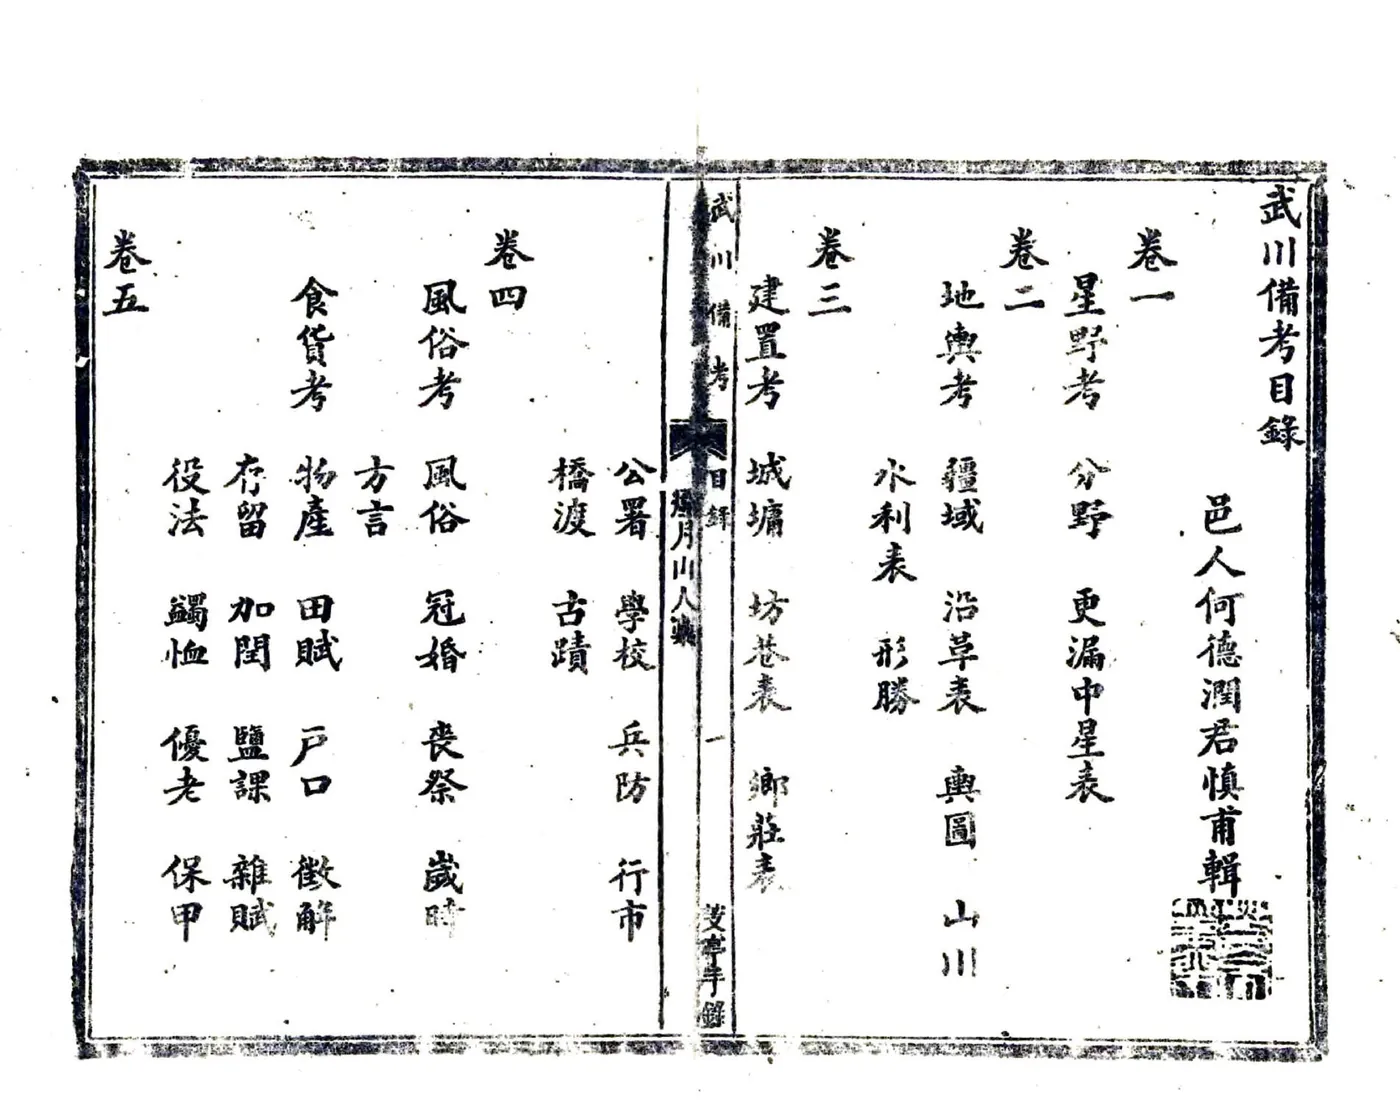 武川備考目錄
邑人何德潤君慎甫輯
卷一
星野考 分野 更漏中星表
卷二
地輿考 疆域 沿革表 輿圖 山川
水利表 形勝
卷三
建置考 城墉 坊巷表 鄉莊表
武川備考 目錄 一
公署 學校 兵防 行市
橋渡 古蹟
卷四
風俗考 風俗 冠婚 喪祭 歲時
方言
食貨考 物產 田賦 戶口 徵解
存留 加閏 鹽課 雜賦
役法 蠲恤 優老 保甲
卷五